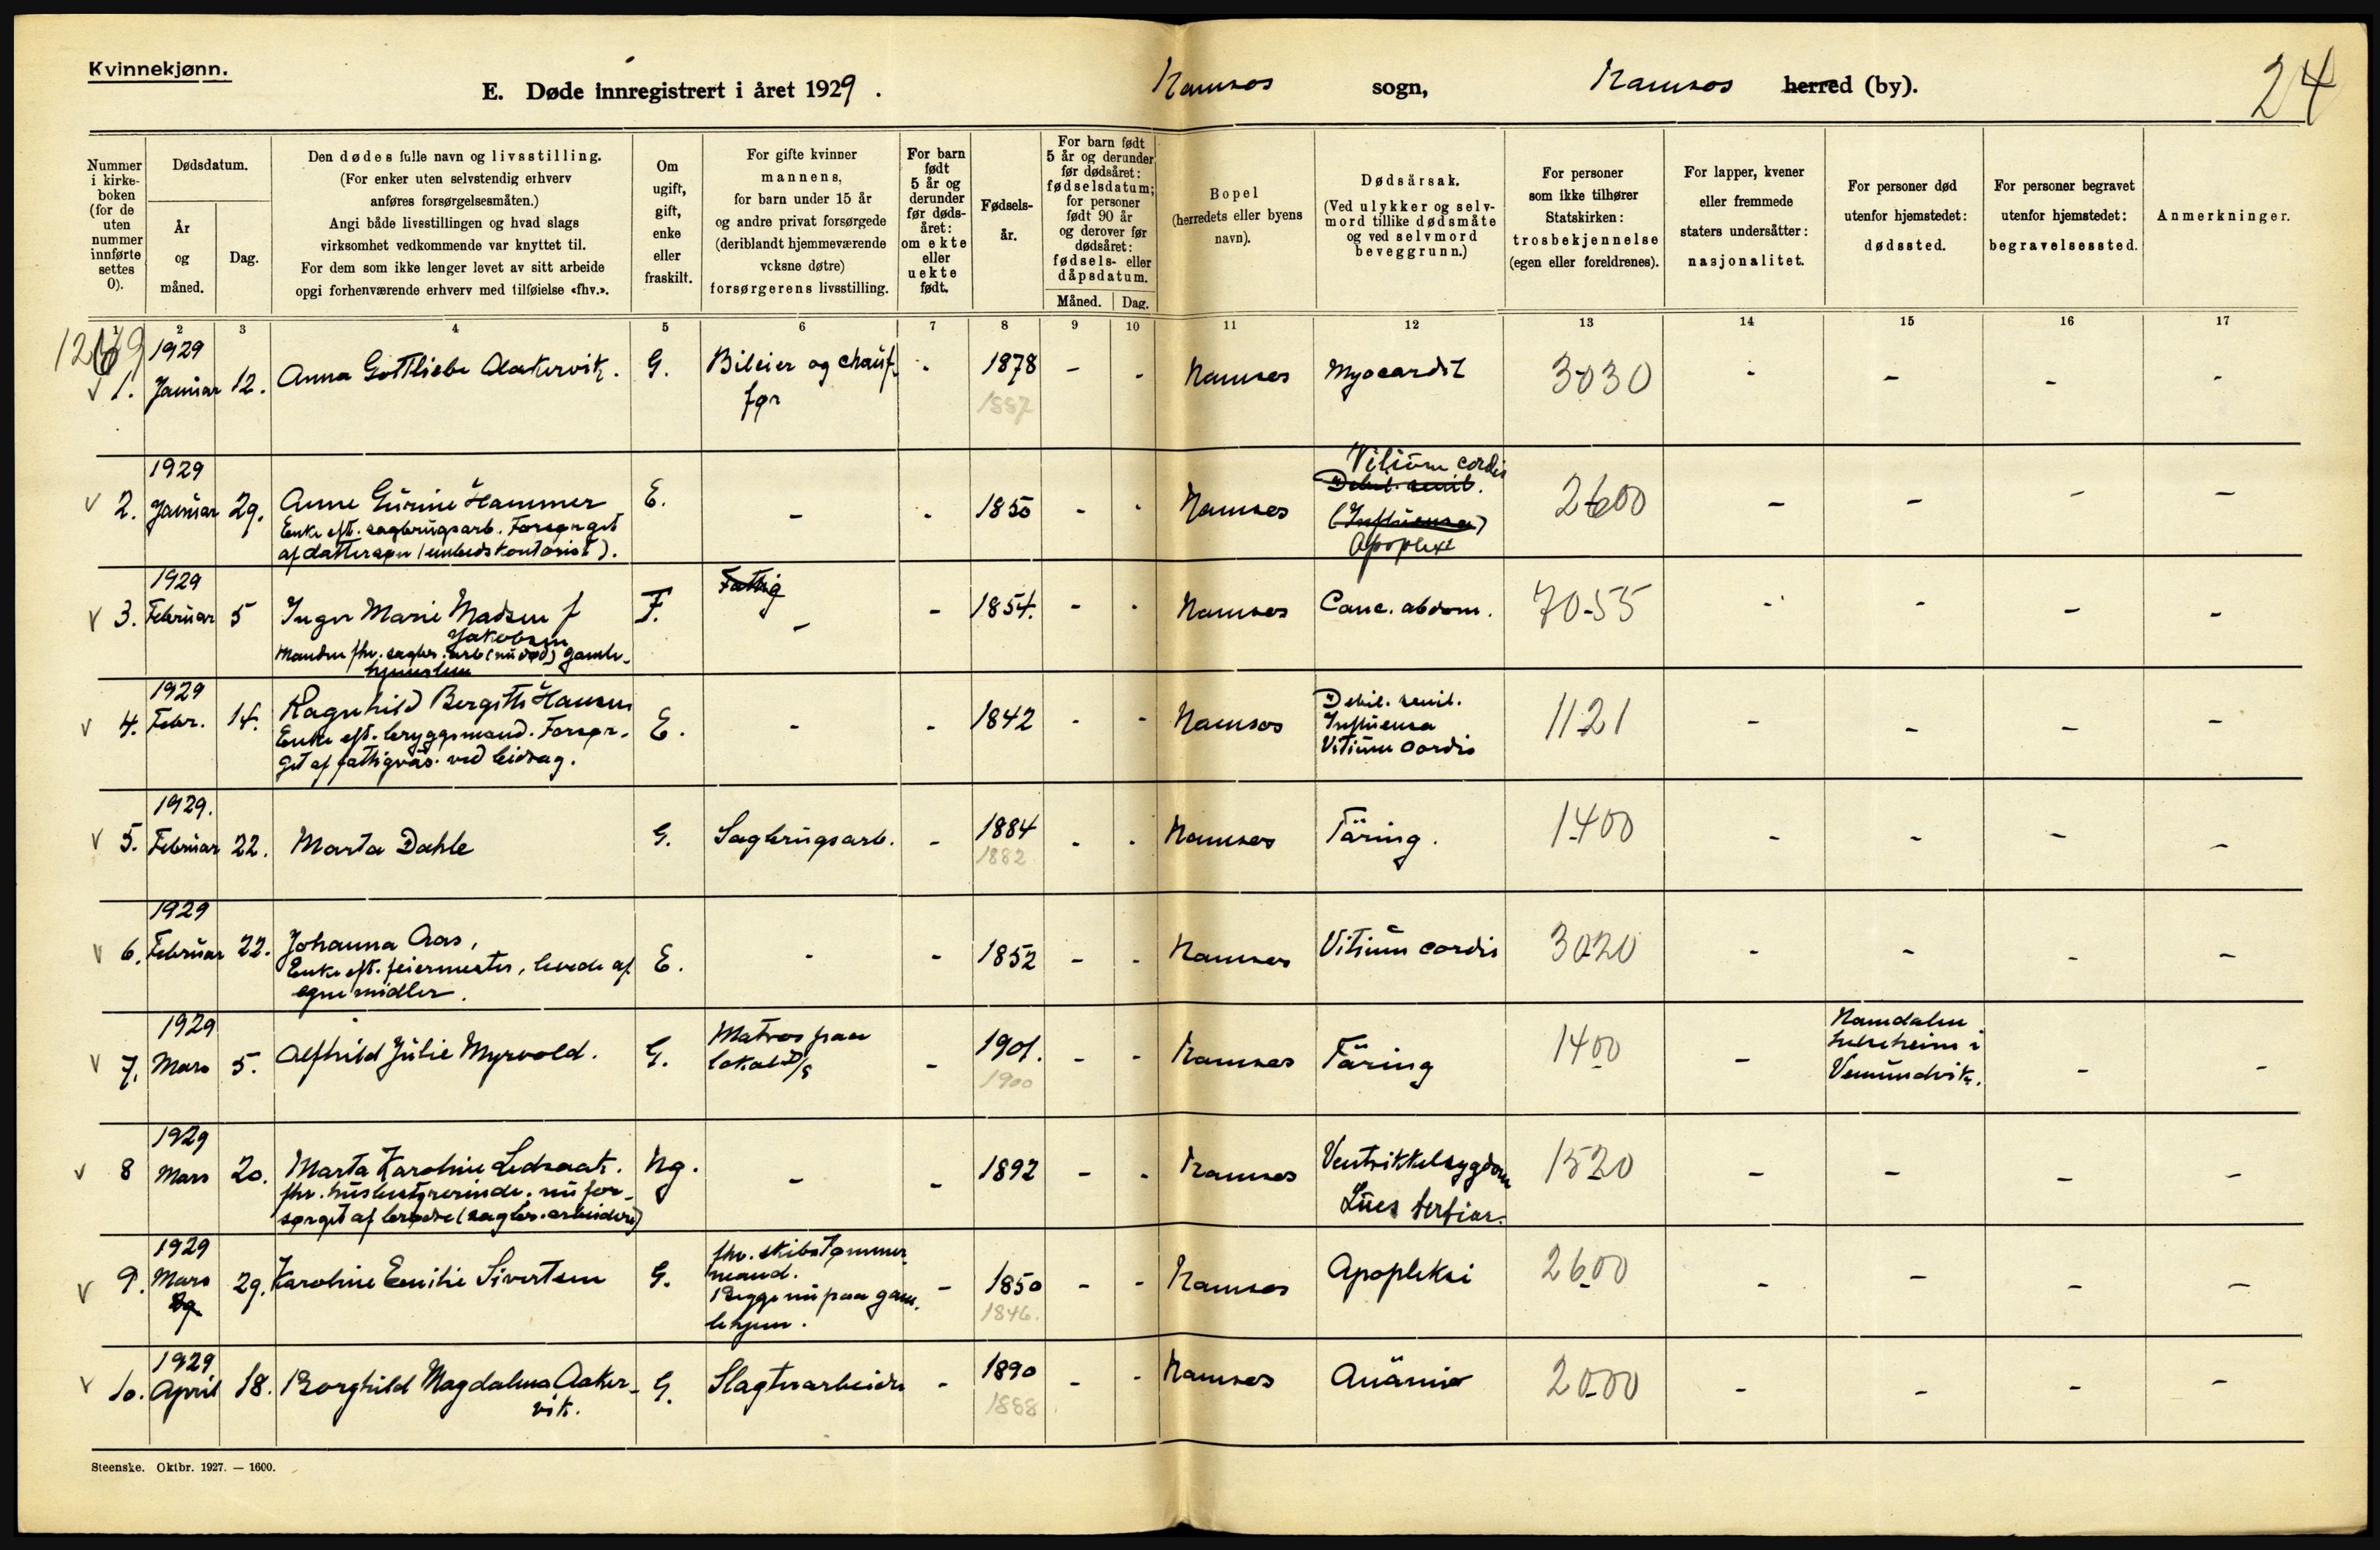 Kvinnekjønn.
E. Døde innregistrert i året 1929.
Namsos sogn,
Namsos herred (by).
24
Nummer
i kirke-
boken
(for de
uten
nummer
innførte
settes
0).
Dødsdatum.
År
og
måned.
Dag.
Den dødes fulle navn og livsstilling.
(For enker uten selvstendig erhverv
anføres forsørgelsesmåten.)
Angi både livsstillingen og hvad slags
virksomhet vedkommende var knyttet til.
For dem som ikke lenger levet av sitt arbeide
opgi forhenværende erhverv med tilføielse «fhv.».
Om
ugift,
gift,
enke
eller
fraskilt.
For gifte kvinner
mannens,
for barn under 15 år
og andre privat forsørgede
(deriblandt hjemmeværende
vcksne døtre)
forsørgerens livsstilling.
For barn
født
5 år og
derunder
før døds-
året:
om ekte
eller
uekte
født.
Fødsels-
år.
For barn født
5 år og derunder
før dødsåret:
fødselsdatum;
for personer
født 90 år
og derover før
dødsåret:
fødsels- eller
dåpsdatum.
Måned. Dag.
Bopel
(herredets eller byens
navn).
Dødsårsak.
(Ved ulykker og selv-
mord tillike dødsmåte
og ved selvmord
beveggrunn.)
For personer
som ikke tilhører
Statskirken:
trosbekjennelse
(egen eller foreldrenes).
For lapper, kvener
eller fremmede
staters undersåtter:
nasjonalitet.
For personer død
utenfor hjemstedet:
dødssted.
For personer begravet
utenfor hjemstedet:
begravelsessted.
Anmerkninger.
1 2 3 4 5 6 7 8 9 10 11 12 13 14 15 16 17
1929
√ 1. Januar 12. Anna Gottliebe Alakervik. G. Bileier og chauf- - 1878 - - Namsos Myocardit 3030 - - - -
før
1887
1929
√ 2. Januar 29. Anne Gurine Hammer E. - - 1850 - - Namsos
Enke eft. sagbrugsarb. Forsørget
af dattersøn (embedskontorist).
Vitium cordis
Debil. senil.
(Influensa)
Apoplexi
2600 - - - -
1929
√ 3. Februar 5 Inger Marie Madsen f F. Fattig - - 1854. - - Namsos Canc. abdom. 70-55 - - - -
Jakobsen
Manden fhv. sagbr. arb (nu død) Gamle-
hjemslem
1929
√ 4. Febr. 14. Ragnhild Bergitte Hansen E. - - 1842 - - Namsos
Enke eft. bryggemand. Forsør-
get af fattigvæs. ved bidrag.
Debil. senil.
Influensa
Vitium cordis
1121 - - - -
1929.
√ 5. Februar 22. Marta Dahle G. Sagbrugsarb. - 1884 - - Namsos Täring. 1400 - - - -
1882
1929
√ 6. Februar 22. Johanna Aas, E. - - 1852 - - Namsos Vitium cordis 3020 - - - -
Enke eft. feiermester, levede af
egne midler.
1929
√ 7. Mars 5. Alfhild Julie Myrvold. G. Matros paa - 1901. - - Namsos Täring 1400 -
lokal D/S
1900
Namdalen
Sykeheim i
Vemundvik.
- -
1929
√ 8 Mars 20. Marta Karoline Ledsaak. Ug. - - 1892 - - Namsos Ventrikkelsygdom 1520 - - - -
fhv. husbestyrerinde. nu for-
sørget af brødre (sagbr. arbeidere)
Lues tertiar.
1929
√ 9. Mars 29. Karoline Emilie Sivertsen G. - 1850 - - Namsos Apopleksi 2600 - - - -
29
fhv. skibstømmer
mand.
Begge nu paa gam-
lehjem.
1846.
1929
√ 10. April 18. Borghild Magdalena Aaker- G. Slagterarbeider - 1890 - - Namsos Anämie 2000 - - - -
vik.
1888
Steenske. Oktbr. 1927. — 1600.